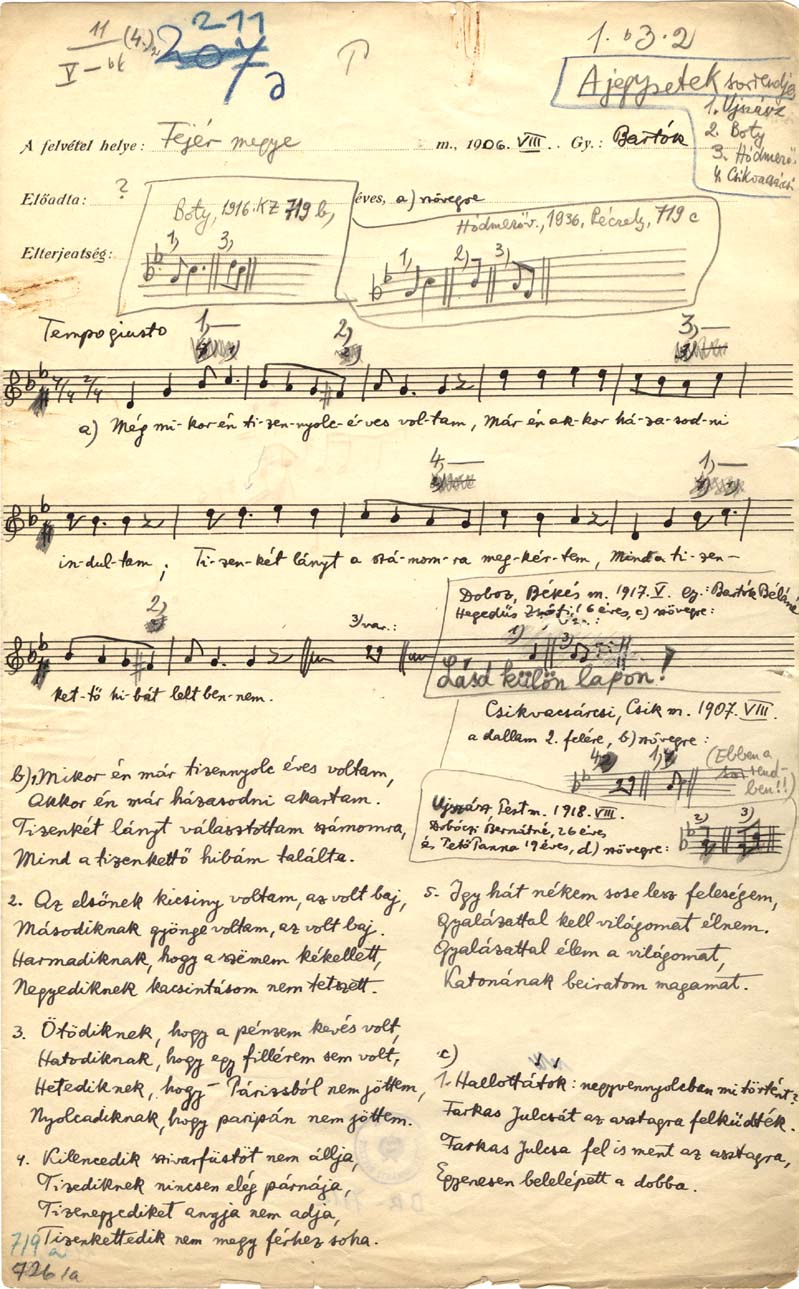 11
V – bk
(4.)
211
207a
1. b3. 2
A jegyzetek sorrendje
1. Ujszász
2. Boty
3. Hódmező.
4. Csikvacsárcsi
A felvétel helye: Fejér megye m., 1906. VIII. Gy.: Bartók
Előadta: ? éves, a) szövegre
Elterjeatség:
Boty, 1916. KZ 719 b,
1) 3)
Hódmezőv., 1936, Péczely, 719 c
1) 2) 3)
Tempo giusto
1) 2) 3)
a) Még mi-kor én ti-zen-nyolc é-ves vol-tam, Már én ak-kor há-za-sod-ni
4) 1)
in-dul-tam; Ti-zen-két lányt a szá-mom-ra meg-kér-tem, Mind a ti-zen-
2) 3) var.:
ket-tő hi-bát lelt ben-nem.
Doboz, Békés m. 1917. V. gy.: Bartók Béláné
Hegedűs 6 éves, c) szövegre:
1) 3)
Lásd külön lapon!
Csikvacsárcsi, Csik m. 1907. VIII.
a dallam 2. felére, b) szövegre:
(Ebben a
sorrend-
ben!!)
Ujszász Pest m. 1918. VIII.
Dobóczi Bernátné, 26 éves
és Pető Panna 19 éves, d) szövegre:
2) 3)
b) 1. Mikor én már tizennyolc éves voltam,
Akkor én már házasodni akartam.
Tizenkét lányt választottam számomra,
Mind a tizenkettő hibám találta.
2. Az elsőnek kicsiny voltam, az volt baj,
Másodiknak gyönge voltam, az volt baj.
Harmadiknak, hogy a szëmem kékellett,
Negyediknek kacsintásom nem tetszett.
3. Ötödiknek, hogy a pénzem kevés volt,
Hatodiknak, hogy egy fillérem sem volt,
Hetediknek, hogy Párizsból nem jöttem,
Nyolcadiknak, hogy paripán nem jöttem.
4. Kilencedik szivarfüstöt nem állja,
Tizediknek nincsen elég párnája,
Tizenegyediket anyja nem adja,
Tizenkettedik nem megy férhez soha.
5. Igy hát nékem sose lesz feleségem,
Gyalázattal kell világomat élnem.
Gyalázattal élem a világomat,
Katonának beiratom magamat.
c)
1. Hallottátok: negyvennyolcban mi történt?
Farkas Julcsát az asztagra felküdték.
Farkas Julcsa fel is ment az asztagra,
Egyenesen belelépett a dobba.
719 a
726/a